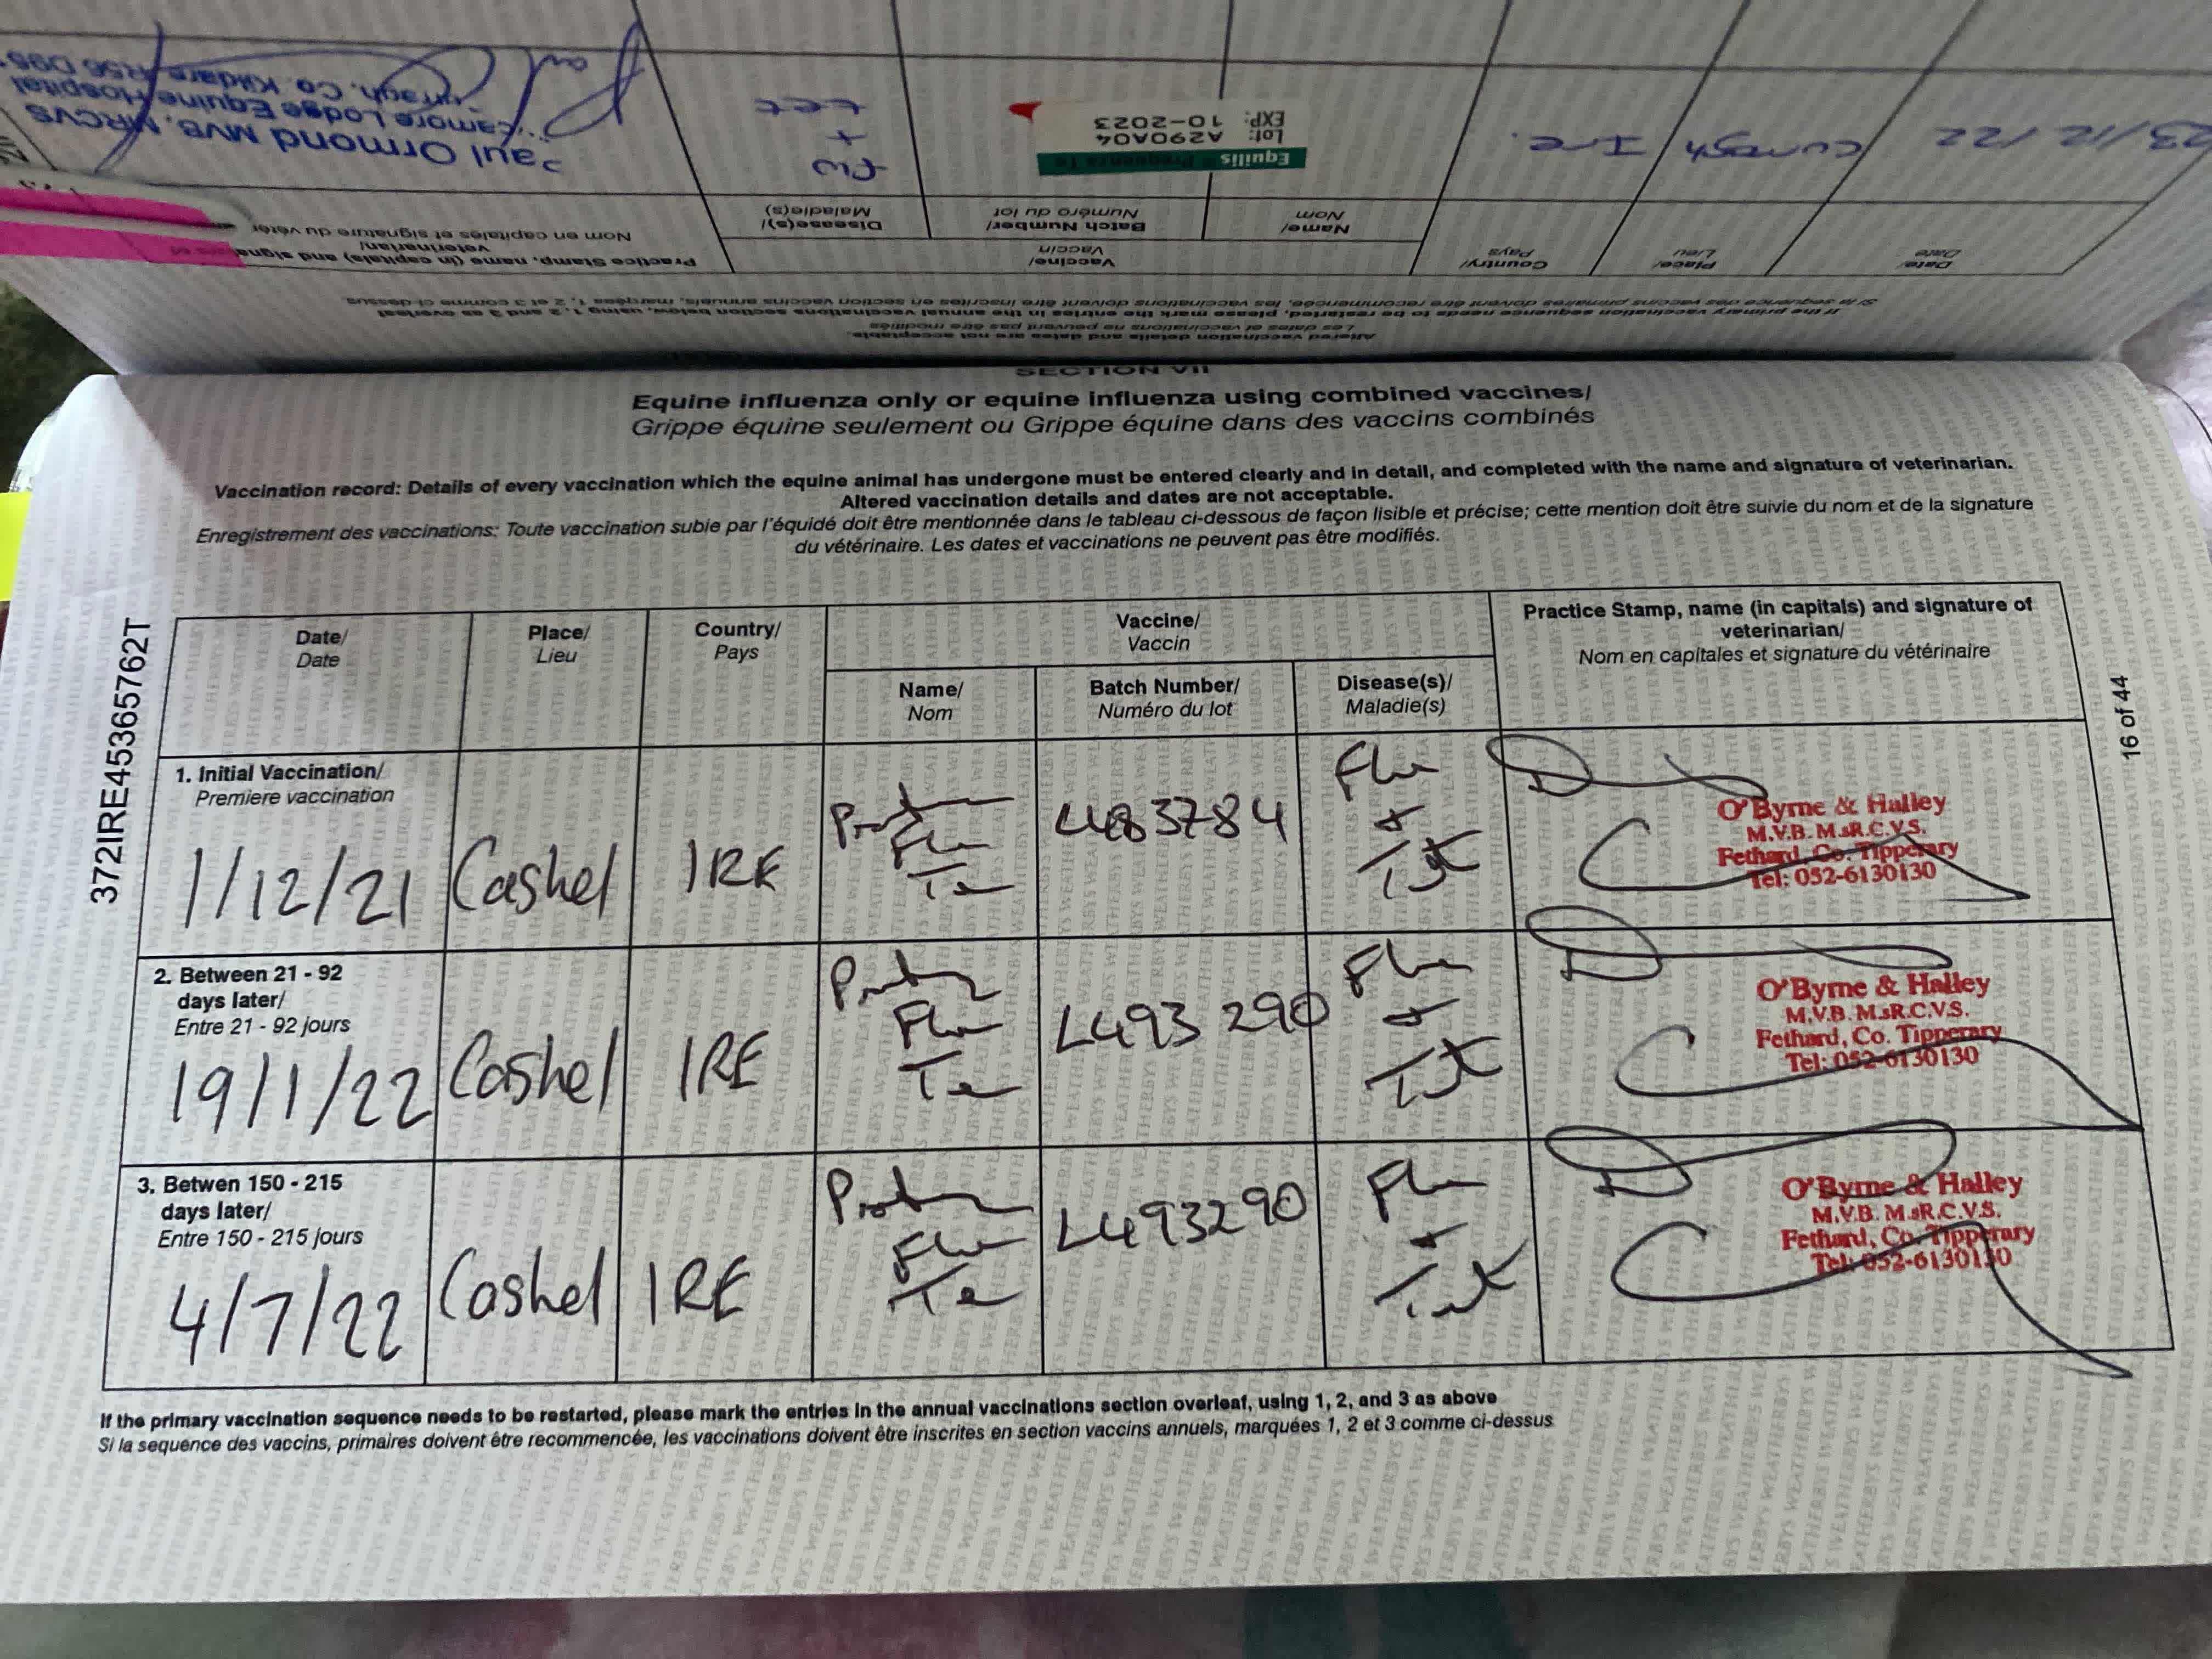 Altered vaccination details and dates are not acceptable.
Les dates et vaccinations ne peuvent pas être modifiés
If the primary vaccination sequence needs to be restarted, please mark the entries in the annual vaccinations section below, using 1, 2 and 3 as overleaf
Si la sequence des vaccins primaires doivent être recommencée, les vaccinations doivent être inscrites en section vaccins annuels, marquées 1, 2 et 3 comme ci-dessus.
Date/
Date
Place/
Lieu
Country/
Pays
Vaccine/
Vaccin
Name/
Nom
Batch Number/
Numéro du lot
Disease(s)/
Maladie(s)
Practice Stamp, name (in capitals) and
veterinarian/
Nom en capitales et signature du vétér
23/12/22
Curragh
Ire.
Equilis Prequenza Te
Lot: A290A04
EXP: 10-2023
+
tet
Paul Ormond MVB, MRCVS
Lodge Equine Hospital
Co. Kildare R56
SECTION VII
Equine influenza only or equine influenza using combined vaccines/
Grippe équine seulement ou Grippe équine dans des vaccins combinés
Vaccination record: Details of every vaccination which the equine animal has undergone must be entered clearly and in detail, and completed with the name and signature of veterinarian.
Altered vaccination details and dates are not acceptable.
Enregistrement des vaccinations: Toute vaccination subie par l'équidé doit être mentionnée dans le tableau ci-dessous de façon lisible et précise; cette mention doit être suivie du nom et de la signature
du vétérinaire. Les dates et vaccinations ne peuvent pas être modifiés.
372IRE45365762T
16 of 44
Date/
Date
Place/
Lieu
Country/
Pays
Vaccine/
Vaccin
Name/
Nom
Batch Number/
Numéro du lot
Disease(s)/
Maladie(s)
Practice Stamp, name (in capitals) and signature of
veterinarian/
Nom en capitales et signature du vétérinaire
1. Initial Vaccination/
Premiere vaccination
1/12/21
Cashel
IRE
Proteq
Flu
Te
L483784
Flu
+
Tet
O'Byrne & Halley
M.V.B. M.sR.C.V.S.
Fethard, Co. Tipperary
Tel: 052-6130130
2. Between 21 - 92
days later/
Entre 21 - 92 jours
19/1/22
Cashel
IRE
Proteq
Flu
Te
L493290
Flu
+
Tet
O'Byrne & Halley
M.V.B. M.sR.C.V.S.
Fethard, Co. Tipperary
Tel: 052-6130130
3. Betwen 150 - 215
days later/
Entre 150 - 215 jours
4/7/22
Cashel
IRE
Proteq
Flu
Te
L493290
Flu
+
Tet
O'Byrne & Halley
M.V.B. M.sR.C.V.S.
Fethard, Co. Tipperary
Tel: 052-6130130
If the primary vaccination sequence needs to be restarted, please mark the entries in the annual vaccinations section overleaf, using 1, 2, and 3 as above
Si la sequence des vaccins, primaires doivent être recommencée, les vaccinations doivent être inscrites en section vaccins annuels, marquées 1, 2 et 3 comme ci-dessus